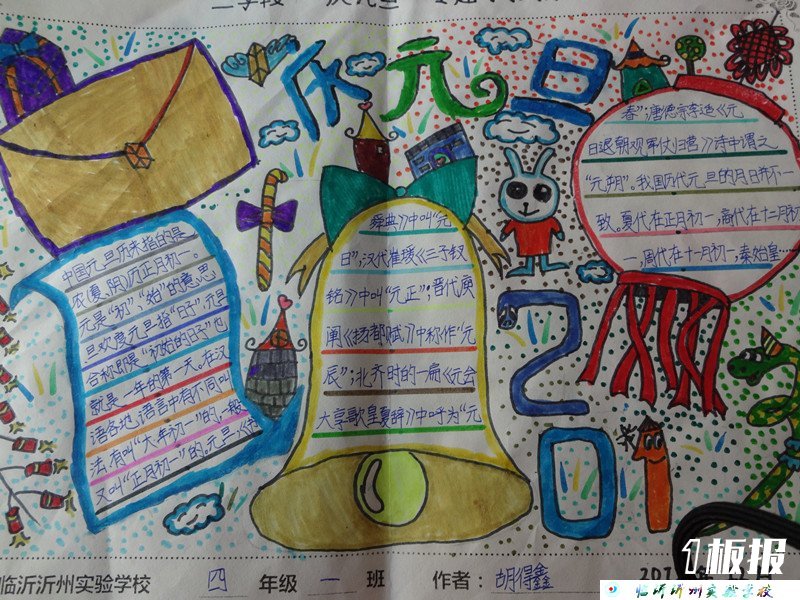 庆元旦
中国元旦历来指的是
农(夏、阴)历正月初一。
元是"初""始"的意思
旦欢度元旦指"日子",元旦
合称即是"初始的日子"也
就是一年的第一天。在汉
语各地,语言中有不同叫
法,有叫"大年初一"的,一般
又叫"正月初一"的。元旦,《
舜典》中叫"元
日",汉代崔瑗《三子钗
铭》中叫"元正";晋代庾
阐《扬都赋》中称作"元
辰";北齐时的一扁《元会
大享歌皇夏辞》中呼为"元
春";唐德宗李适《元
日退朝观军仗归营》诗中谓之
"元朔"。我国历代元旦的月日并不一
致。夏代在正月初一,商代在十二月初
一,周代在十一月初一,秦始皇……
201
临沂沂州实验学校 四 年级 一 班 作者:胡得鑫
1板报
临沂沂州实验学校